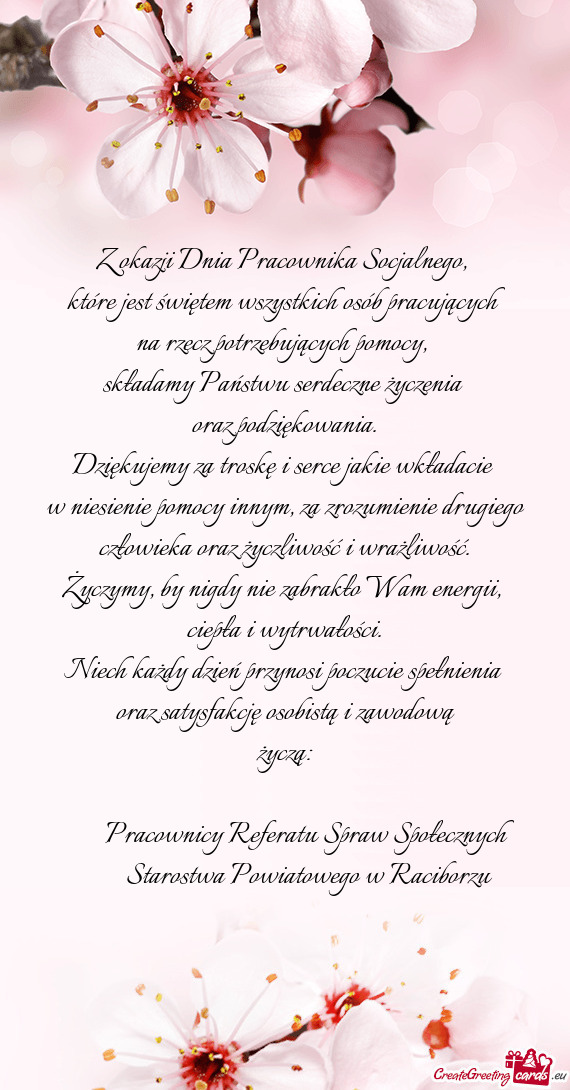 Z okazji Dnia Pracownika Socjalnego,
które jest świętem wszystkich osób pracujących
na rzecz potrzebujących pomocy,
składamy Państwu serdeczne życzenia
oraz podziękowania.
Dziękujemy za troskę i serce jakie wkładacie
w niesienie pomocy innym, za zrozumienie drugiego
człowieka oraz życzliwość i wrażliwość.
Życzymy, by nigdy nie zabrakło Wam energii,
ciepła i wytrwałości.
Niech każdy dzień przynosi poczucie spełnienia
oraz satysfakcję osobistą i zawodową
życzą:
Pracownicy Referatu Spraw Społecznych
Starostwa Powiatowego w Raciborzu
CreateGreeting cards .eu